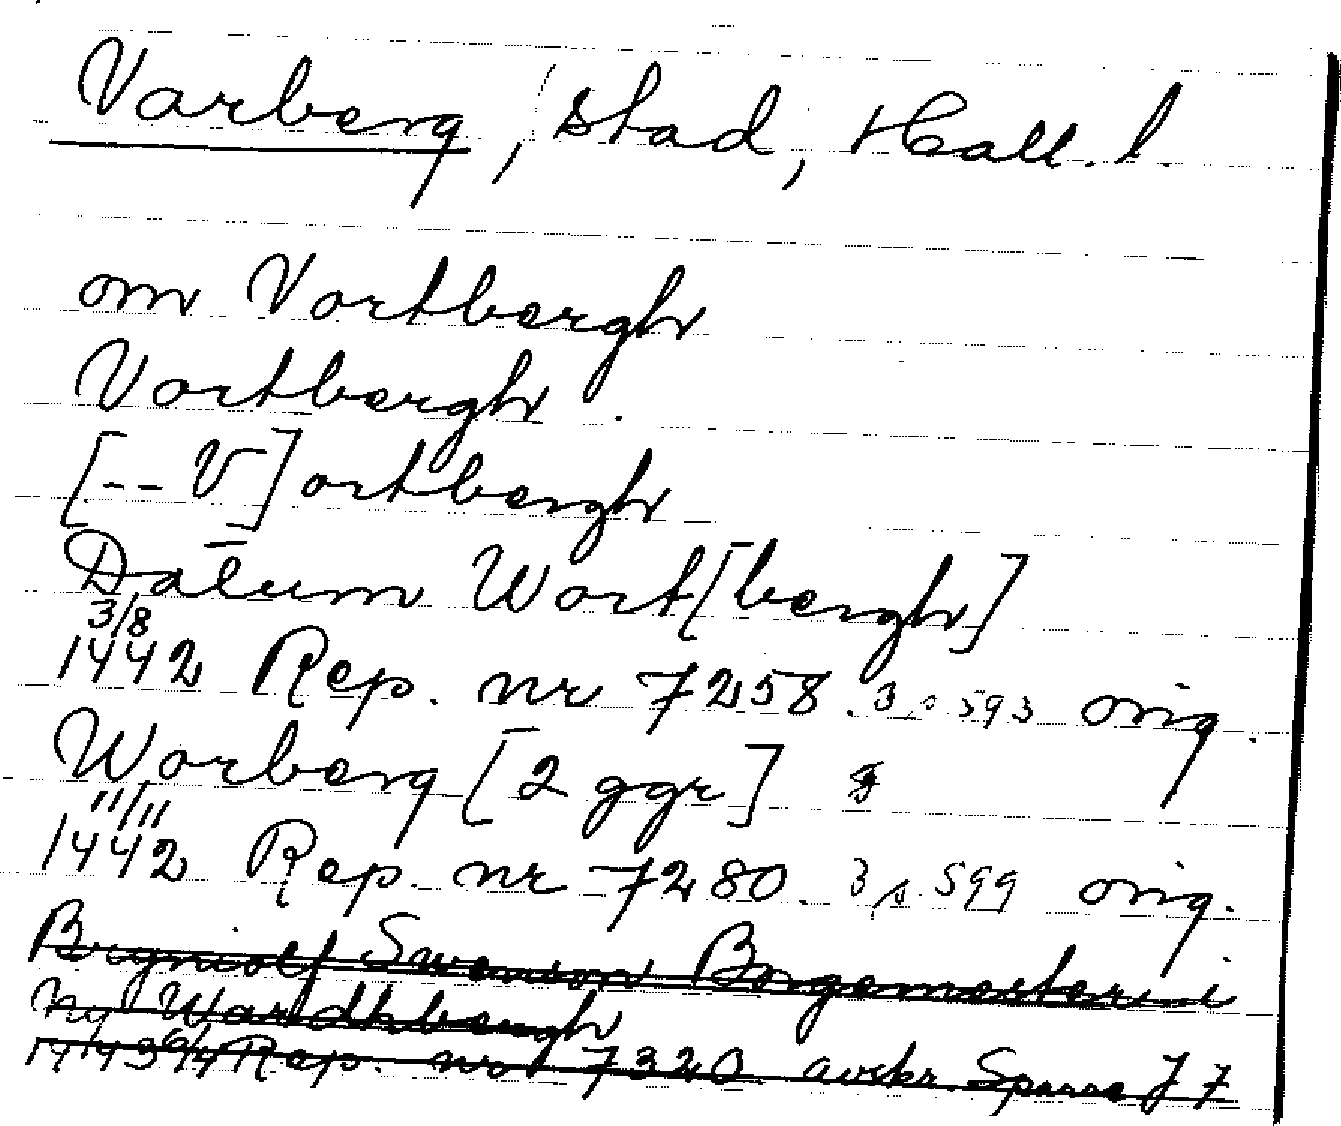 Varberg, stad, Hall. l.
om Vortbergh
Vortbergh.
[-- V]ortbergh
Datum Wort[bergh]
3/8
1442 Rep. nr 7258. 3 s 593 orig.
Worberg [2 ggr]
11/11
1442 Rep. nr 7280. 3 s. 599 orig.
Bryniolf Swenson Borgemestere i
ny Wardhbergh
1443 6/4 Rep. nr 7320 avskr. Sparre J 7